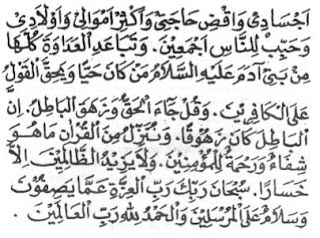 اَجْسَادِى وَاقْضِ حَاجَتِى وَاَكْثِرْ اَمْوَالِى وَاَوْلَادِى
وَحَبِّبْ لِلنَّاسِ اَجْمَعِيْنَ. وَتَبَاعَدِ الْعَدَاوَةَ كُلَّهَا
مِنْ بَنِىْ آدَمَ عَلَيْهِ السَّلَامُ مَنْ كَانَ حَيًّا وَيَحِقَّ الْقَوْلُ
عَلَى الْكَافِرِيْنَ. وَقُلْ جَاءَ الْحَقُّ وَزَهَقَ الْبَاطِلُ. اِنَّ
الْبَاطِلَ كَانَ زَهُوْقًا. وَنُنَزِّلُ مِنَ الْقُرْآنِ مَا هُوَ
شِفَاءٌ وَرَحْمَةٌ لِلْمُؤْمِنِيْنَ. وَلَا يَزِيْدُ الظَّالِمِيْنَ اِلَّا
خَسَارًا. سُبْحَانَ رَبِّكَ رَبِّ الْعِزَّةِ عَمَّا يَصِفُوْنَ
وَسَلَامٌ عَلَى الْمُرْسَلِيْنَ وَالْحَمْدُ لِلّٰهِ رَبِّ الْعَالَمِيْنَ.